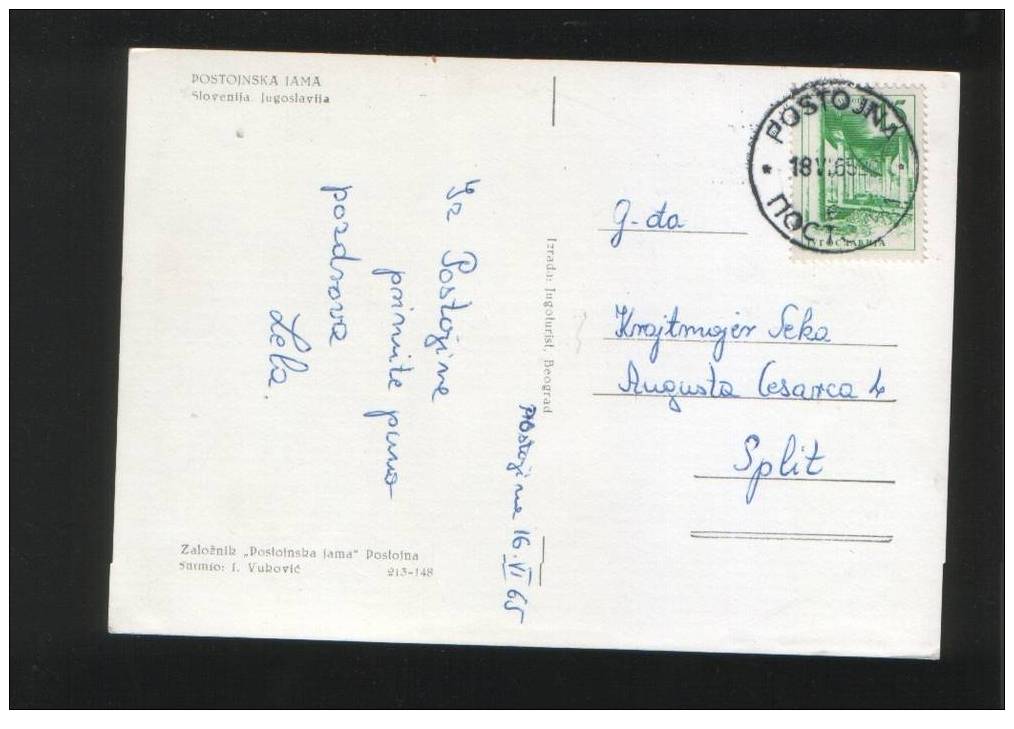 POSTOJNSKA JAMA
Slovenija Jugoslavija
Iz Postojne
primite puno
pozdrava
Lela.
Postojna 16. VI 65
Založnik „Postojnska jama" Postojna
Snimio: I. Vuković 213-148
Izrada: Jugoturist, Beograd
POSTOJNA
18 VI.65
ПОСТ
ЈУГОСЛАВИЈА
G-đa
Krajtmajer Seka
Augusta Cesarca 4
Split